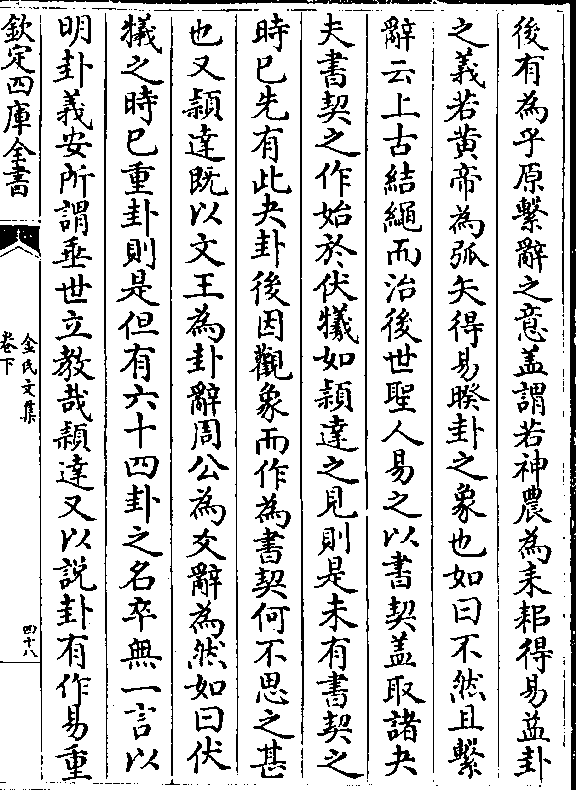 後有為乎原繫辭之意盖謂若神農為耒耜得易益卦
之義若黄帝為弧矢得易暌卦之象也如曰不然且繫
辭云上古結繩而治後世聖人易之以書契盖取諸夬
夫書契之作始於伏犧如頴達之見則是未有書契之
時已先有此夬卦後因觀象而作為書契何不思之甚
也又頴達既以文王為卦辭周公為爻辭為然如曰伏
犧之時已重卦則是但有六十四卦之名卒無一言以
明卦義安所謂垂世立教哉頴達又以説卦有作易重
欽定四庫全書
金氏文集
卷下
四十八